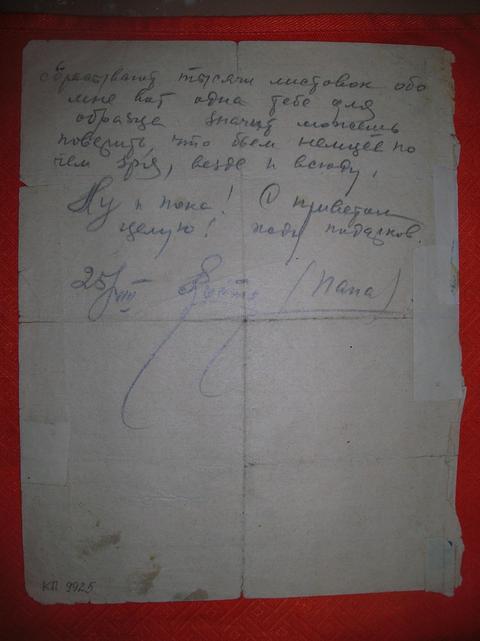 Сбрасывают тысячи листовок обо
мне вот одна тебе для
образца значит можешь
поверить, что бьем немцев по
чем зря, везде и всюду.
Ну и пока! С приветом
целую! жди подарков.
25/VIII Костя (Папа)
КП 9925